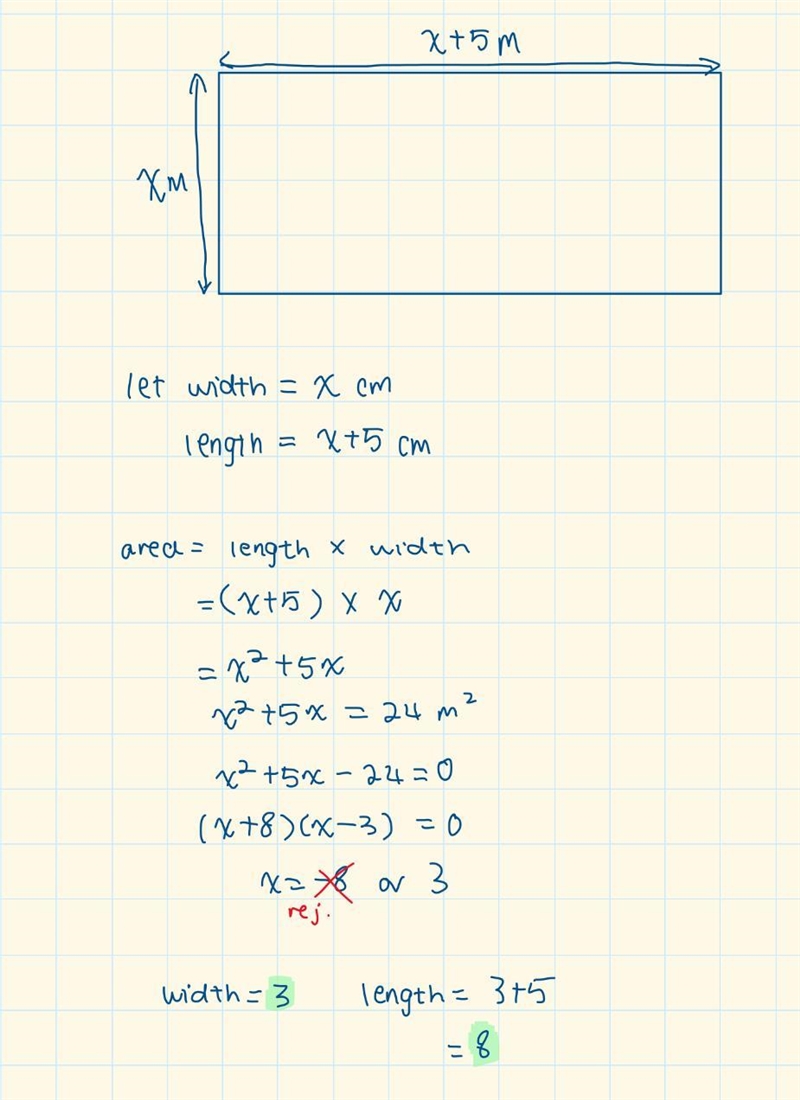 x+5m
xm
let width = x cm
length = x+5 cm
area = length × width
=(x+5) × x
= x²+5x
x²+5x = 24 m²
x²+5x-24=0
(x+8)(x-3) = 0
x= -8 or 3
rej.
width = 3 length = 3+5
= 8